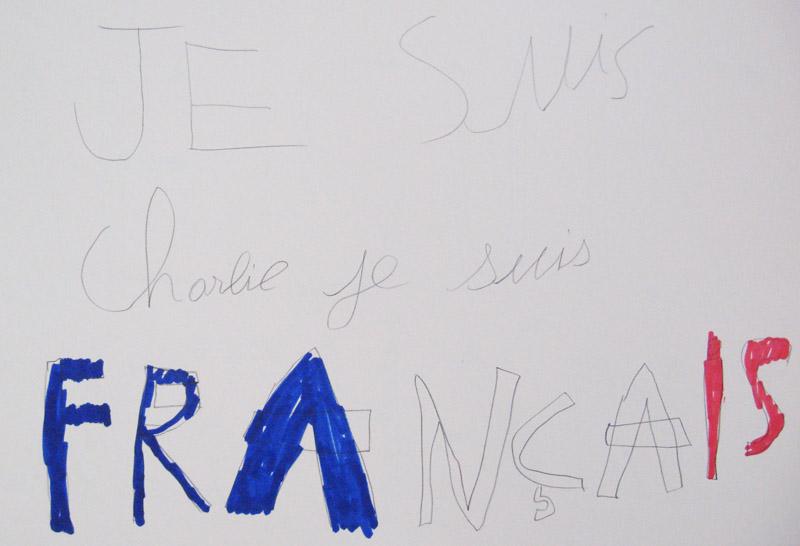 JE suis
Charlie je suis
FRANÇAIS